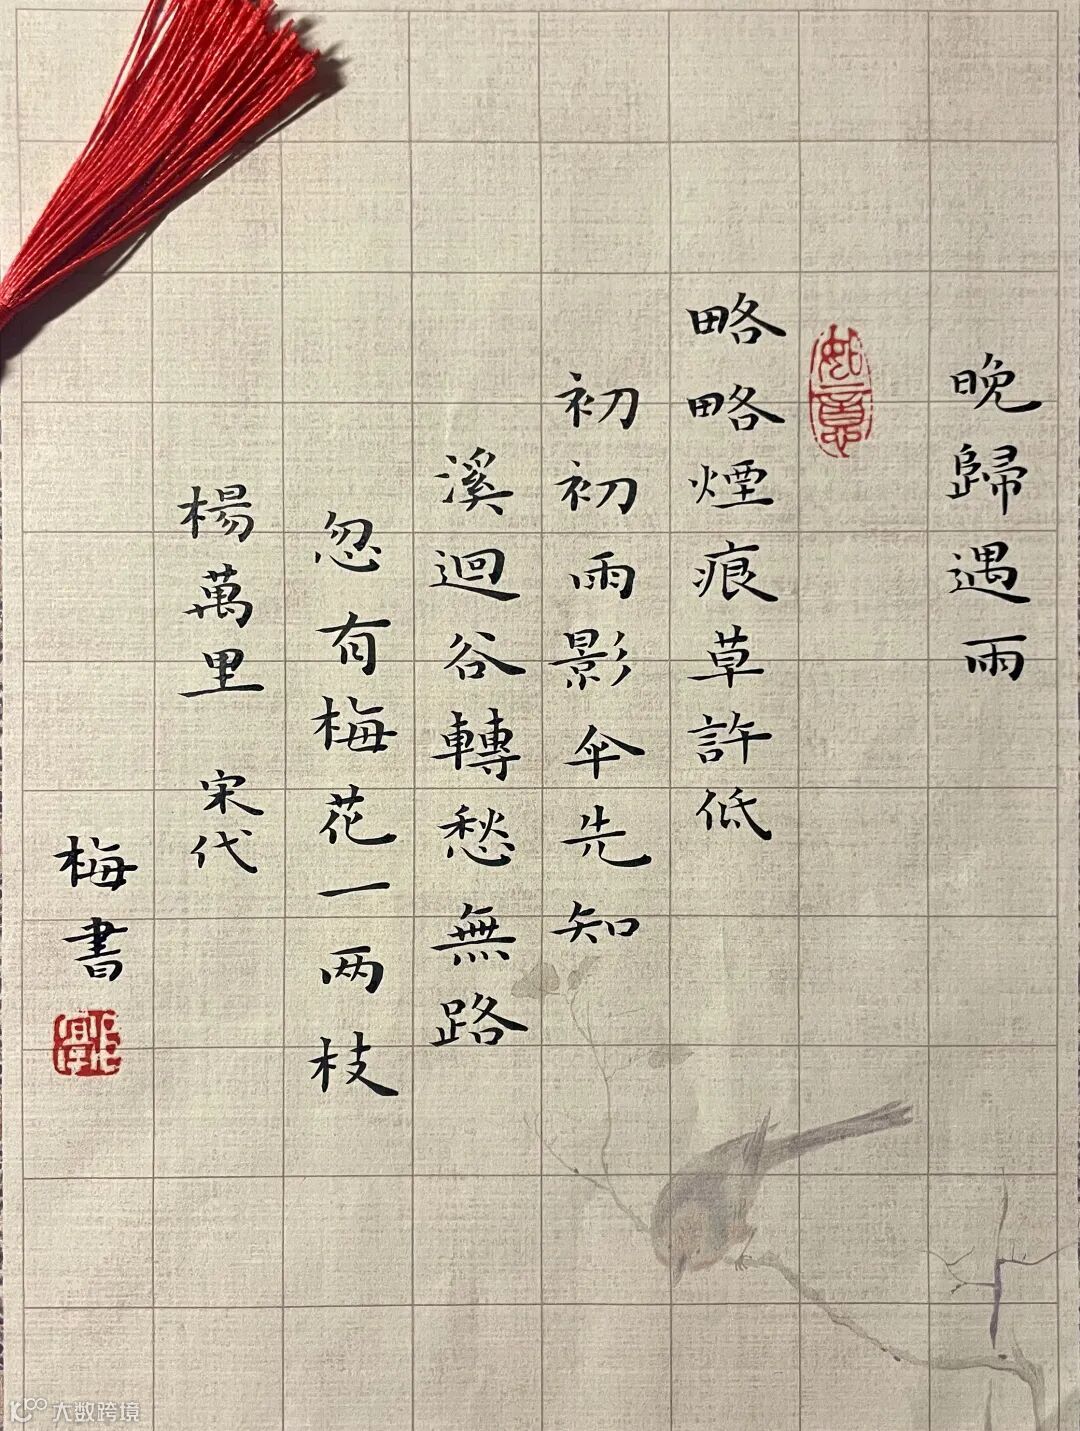 晚歸遇雨
如意
略略煙痕草許低
初初雨影伞先知
溪迴谷轉愁無路
忽有梅花一两枝
楊萬里 宋代
梅書
大数跨境